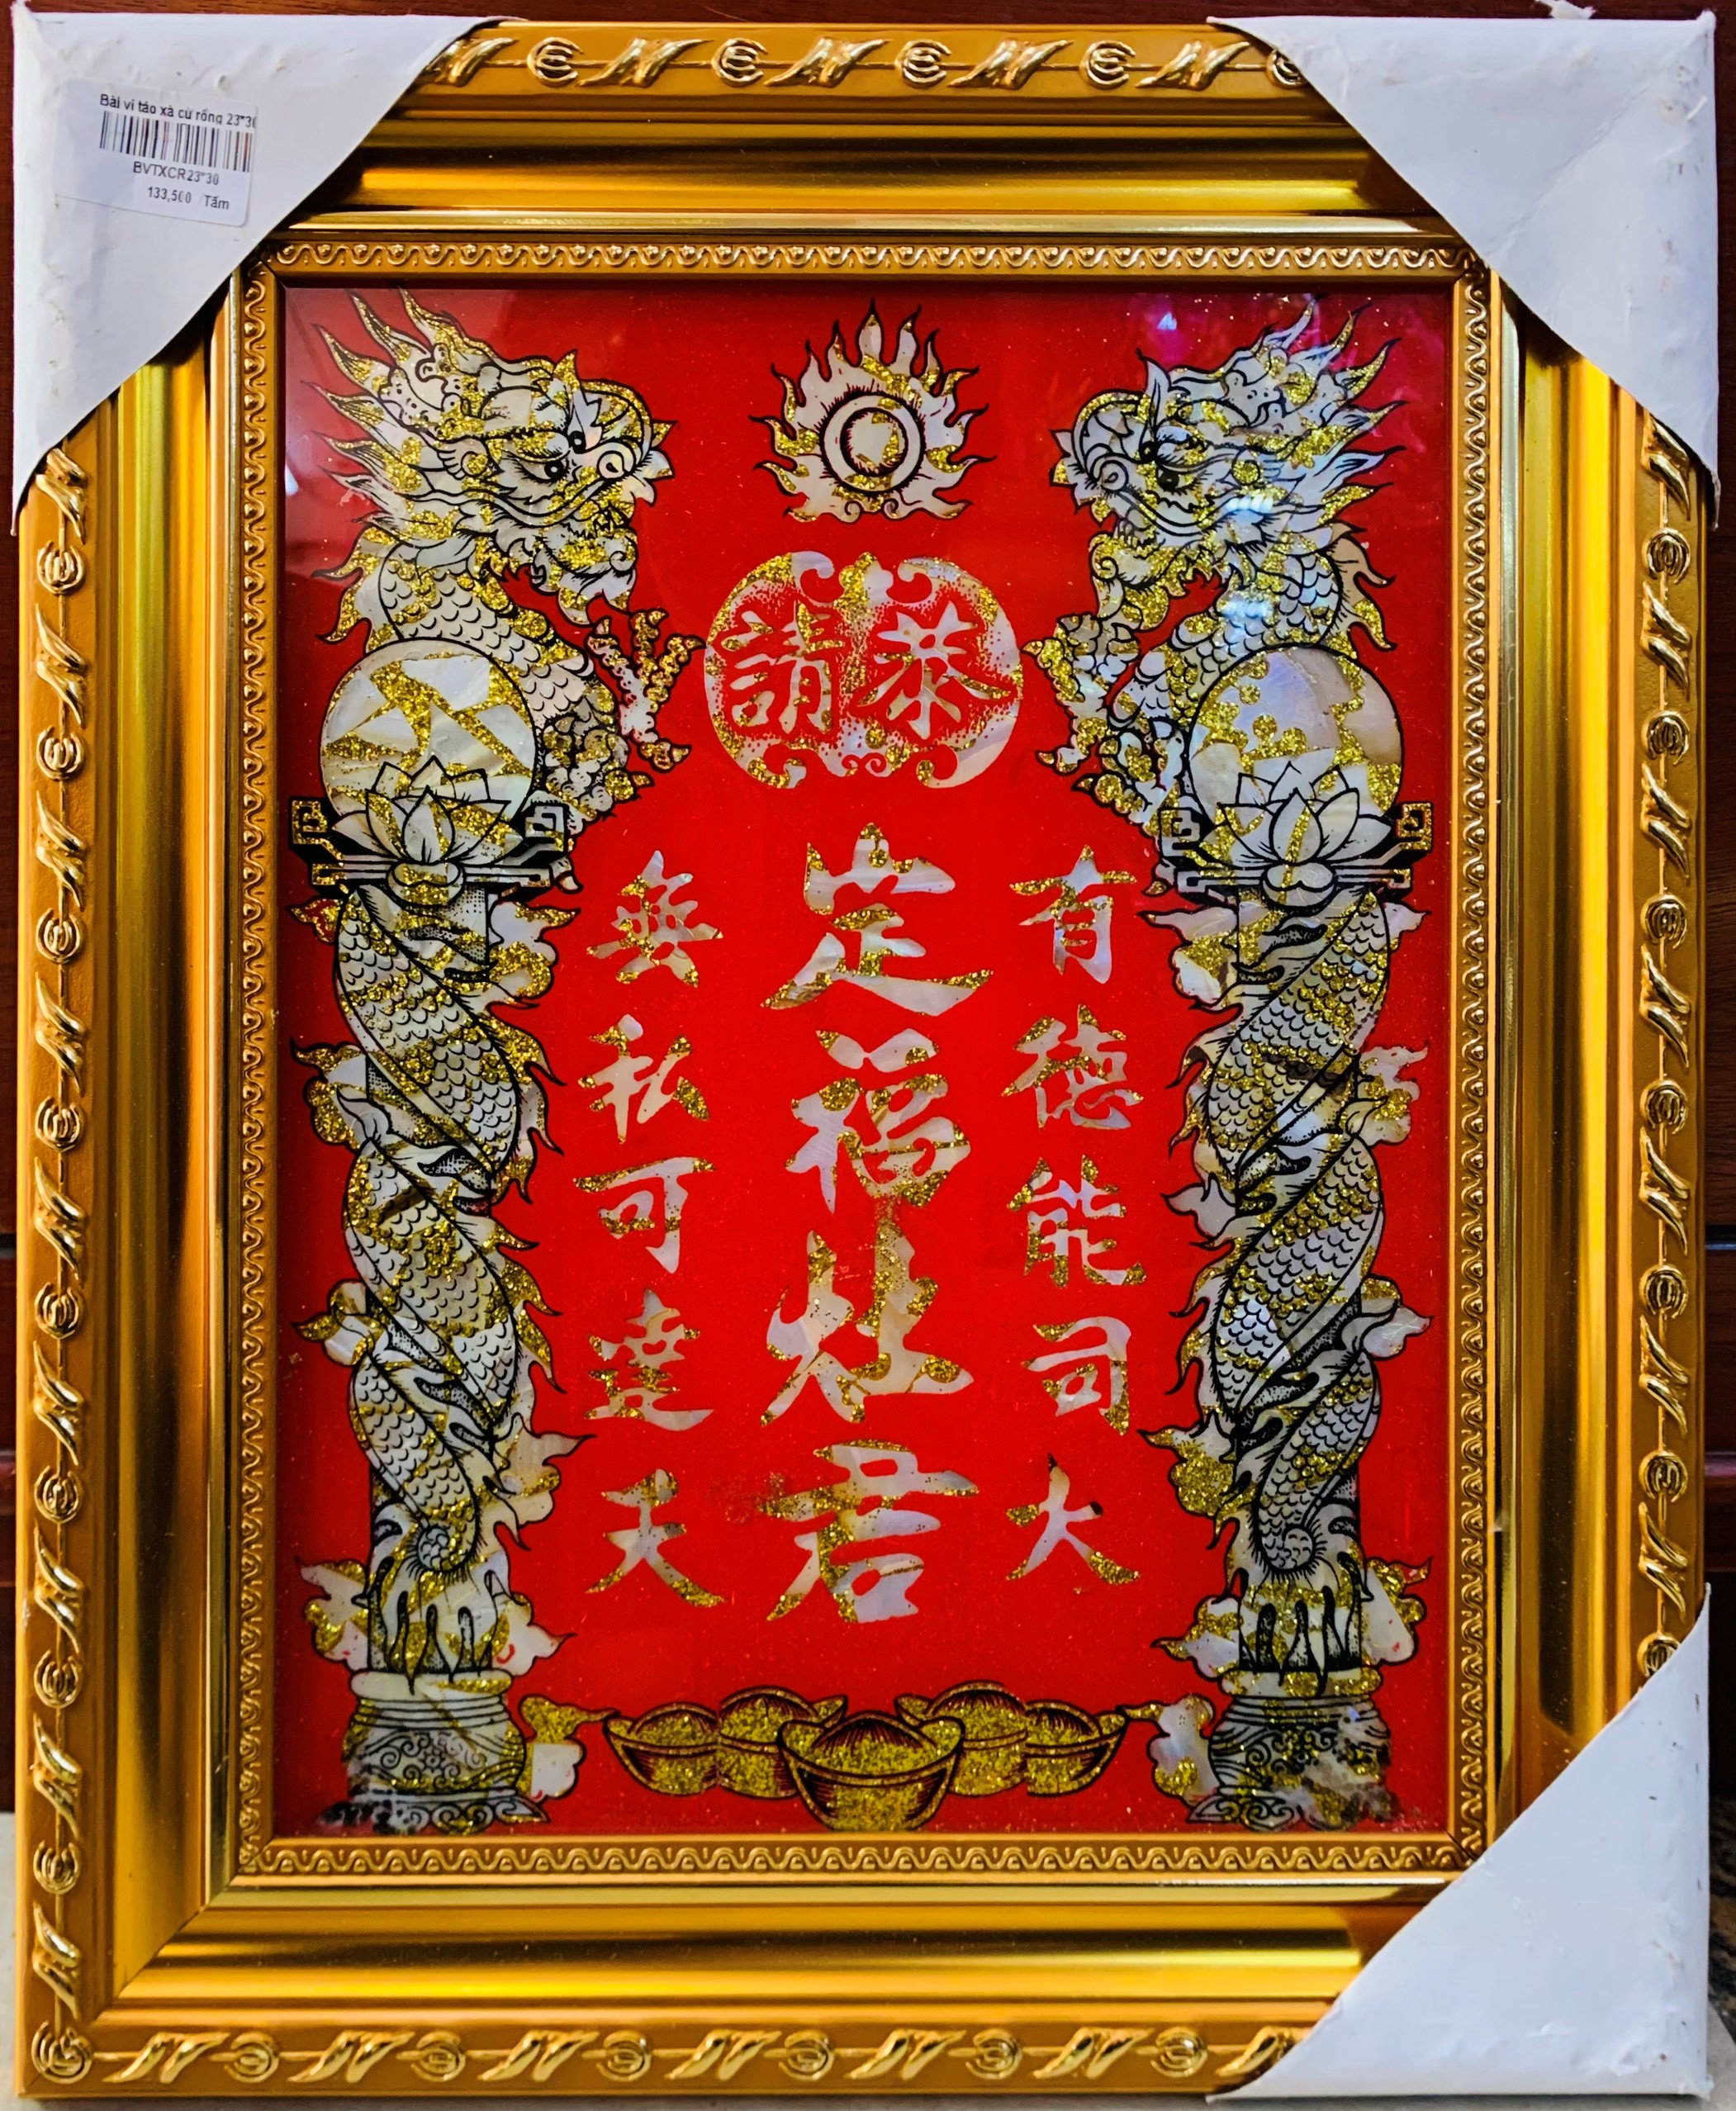 Bài vị táo xà cừ rồng 23*30
BVTXCR23*30
133,500 /Tấm
恭請
有德能司火
定福灶君
無私可達天